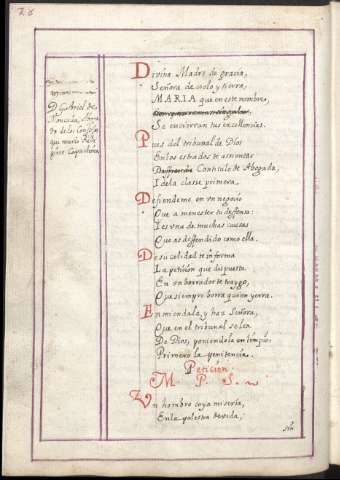 28
D. Gabriel de
Divina Madre de gracia,
Señora de cielo y tierra,
MARIA que en este nombre,
Se encierran tus excellencias.
Pues del tribunal de Dios
En los estrados te assientas
Con titulo de Abogada,
I de la classe primera.
Defiendeme en vn negocio
Que a menester tu deffensa:
I es vna de muchas causas
Que as deffendido como ella.
De su calidad te informa
La peticion que dispuesta
En vn borrador te traygo,
Que siempre borra quien yerra.
Enmiendala, y haz Señora,
Que en el tribunal se lea
De Dios, poniendola en limpio:
Primero la penitencia.
Peticion
M. P. S.
Vn hombre cuya miseria,
En la palestra de vida,